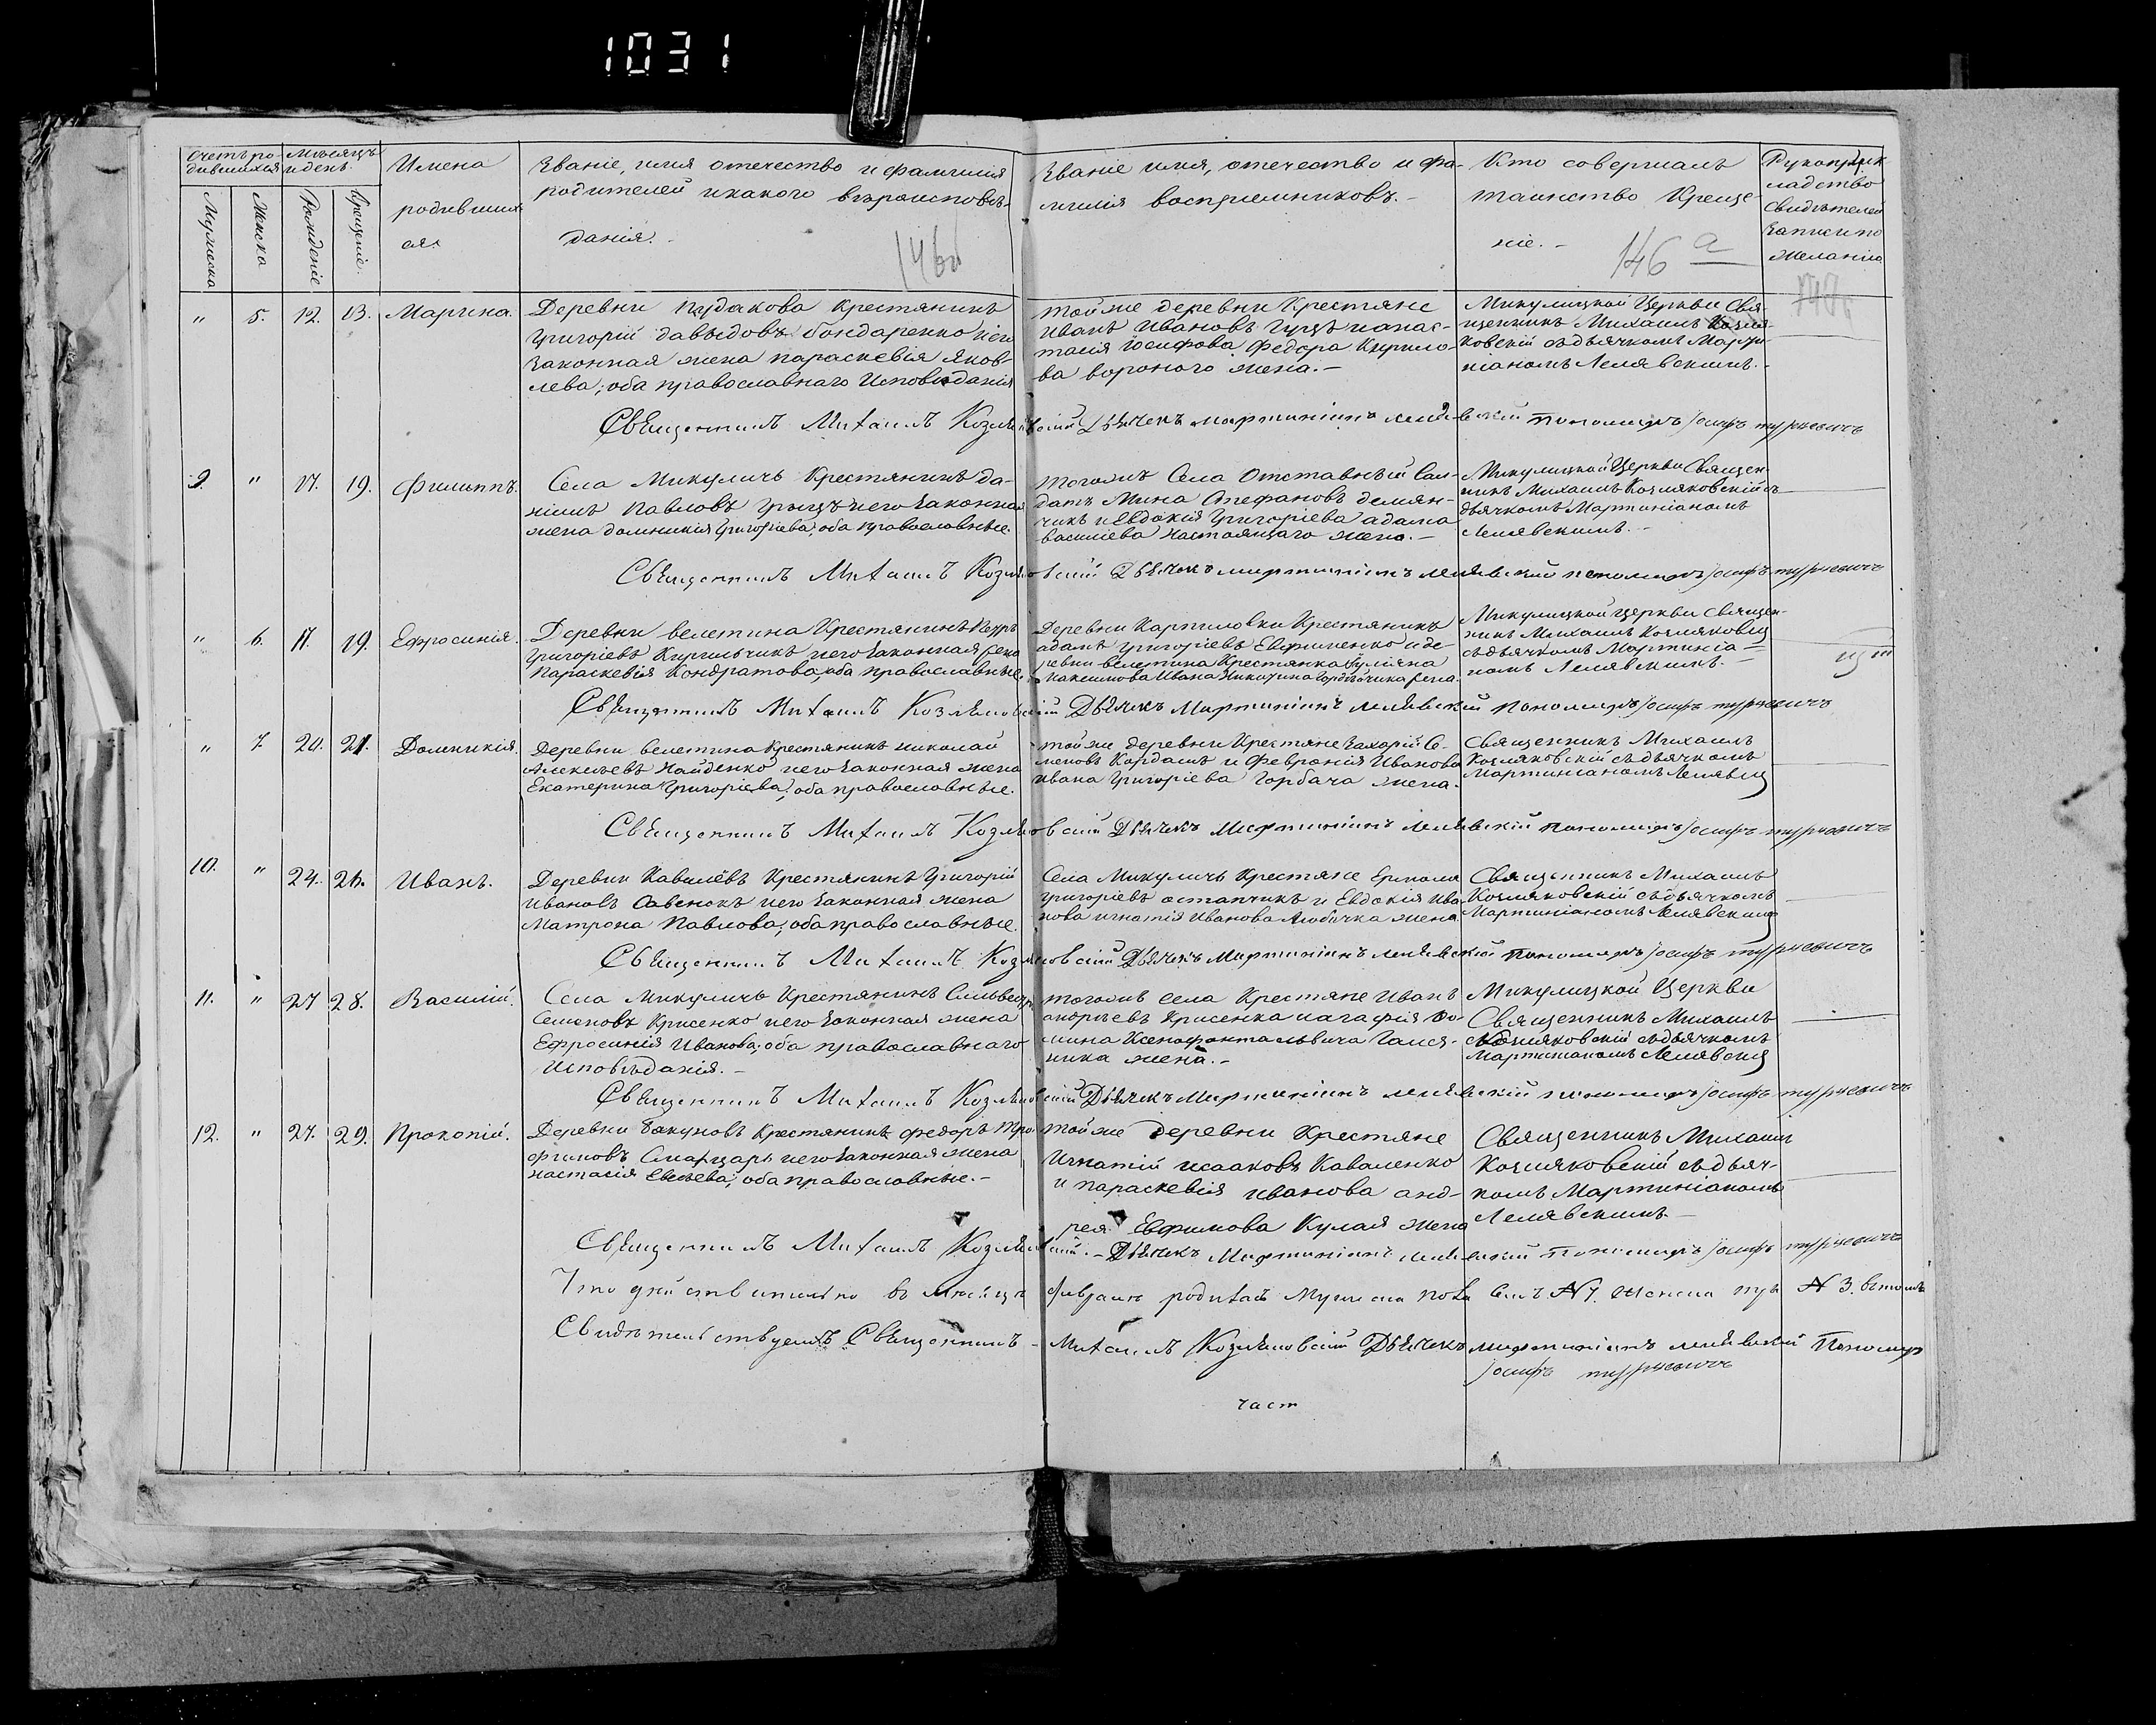 1031
Счетъ ро-
дившихся
Мѣсяцъ
и день.
Мужеска
Женска
Рожденіе
Крещеніе.
Имена
родивших
ся.
Званіе, имя отечество и фамилия
родителей и какого вѣроисповѣ-
данія.
146
Званіе имя, отечество и фа-
милія воспріемниковъ.
Кто совершалъ
таинство Креще-
ніе.
146 а
Рукоприк
ладство
свидѣтелей
записи по
желанію
" 5. 12. 13. Марина.
Деревни Пудакова Крестянинъ
Григорій Давыдовъ Бондаренко и его
законная жена Параскевія Яков-
лева, оба православнаго Исповѣданія
тойже деревни Крестяне
Иванъ Ивановъ Гуцъ и анас-
тасія Іосифова Федора Кирило-
ва вороного жена.-
Микулицкой Церкви Свя
щенникъ Михаилъ Козля-
ковскій съ дьячкомъ Марти-
ніаномъ Лелявскимъ.
Священникъ Михаилъ Козляковскій Дьячекъ Мартиніанъ Лелявскій Пономарь Іосифъ Турцевичъ
9. " 17. 19. Филиппъ.
Села Микуличь Крестянинъ Да-
ніилъ Павловъ Грыцъ и его законная
жена Домникія Григоріева, оба православные.
тогожъ Села Отставный Сол-
датъ Мина Стефановъ Демян-
чикъ и Евдокія Григоріева адама
василіева Настоящаго жена.-
Микулицкой Церкви Священ-
никъ Михаилъ Козляковскій съ
дьячкомъ Мартиніаномъ
Лелявскимъ.-
Священникъ Михаилъ Козляковскій Дьячекъ Мартиніанъ Лелявскій Пономарь Іосифъ Турцевичъ
" 6. 17. 19. Ефросинія.
Деревни велетина Крестянинъ Петръ
Григоріевъ Кирильчикъ и его законная жена
Параскевія Кондратова, оба православные.
Деревни Карпиловки Крестянинъ
адамъ Григоріевъ Евфименко и де-
ревни велетина Крестянка Уліяна
Максимова Ивана жена.
Микулицкой Церкви Священ-
никъ Михаилъ Козляковск
съ дьячкомъ Мартиніа-
номъ Лелявскимъ.-
Священникъ Михаилъ Козляковскій Дьячекъ Мартиніанъ Лелявскій Пономарь Іосифъ Турцевичъ
" 7. 20. 21. Домникія.
Деревни велетина Крестянинъ Николай
Алексѣевъ Найденко и его законная жена
Екатерина Григоріева, оба православные.
тойже деревни Крестяне Захарій Се-
меновъ Кардашъ и Февронія Иванова
Ивана Григоріева Горбача жена.
Священникъ Михаилъ
Козляковскій съ дьячкомъ
Мартиніаномъ Лелявск
Священникъ Михаилъ Козляковскій Дьячекъ Мартиніанъ Лелявскій Пономарь Іосифъ Турцевичъ
10. " 24. 26. Иванъ.
Деревни Кавалёвъ Крестянинъ Григорій
Ивановъ Савенокъ и его законная жена
Матрона Павлова, оба православные.
Села Микуличь Крестяне Ермола
Григоріевъ остапчикъ и Евдокія Ива
нова игнатія Иванова жена
Священникъ Михаилъ
Козляковскій съ дьячкомъ
Мартиніаномъ Лелявским
Священникъ Михаилъ Козляковскій Дьячекъ Мартиніанъ Лелявскій Пономарь Іосифъ Турцевичъ
11. " 27 28. Василій.
Села Микуличь Крестянинъ Сильвестр
Семеновъ Крисенко и его законная жена
Ефросинія Иванова, оба православнаго
Исповѣданія.-
тогожъ села Крестяне Иванъ
андрѣевъ Крисенка и агафія Фо-
мина Ксенофонта Львича Галея-
ника жена.-
Микулицкой Церкви
Священникъ Михаилъ
Козляковскій съ дьячкомъ
Мартиніаномъ Лелявски
Священникъ Михаилъ Козляковскій Дьячекъ Мартиніанъ Лелявскій Пономарь Іосифъ Турцевичъ
12. " 27. 29. Прокопій.
Деревни Бакуновъ Крестянинъ Федоръ Тро
фимовъ и его законная жена
Настасія Евсѣева, оба православные.-
тойже Деревни Крестяне
Игнатій Исааковъ Каваленко
и Параскевія Иванова анд-
рея Евфимова Кулая жена
Священникъ Михаил
Козляковскій съ дьяч-
комъ Мартиніаномъ
Лелявскимъ.-
Священникъ Михаилъ Козляковскій.- Дьячекъ Мартиніанъ Лелявскій Пономарь Іосифъ Турцевичъ
Что дѣйствительно въ мѣсяцѣ февралѣ родилось Мужеска пола № 7. Женска № 3. въ томъ
Свидѣтельствуемъ Священникъ - Михаилъ Козляковскій Дьячекъ Мартиніанъ Лелявскій Пономарь
Іосифъ Турцевичъ
част